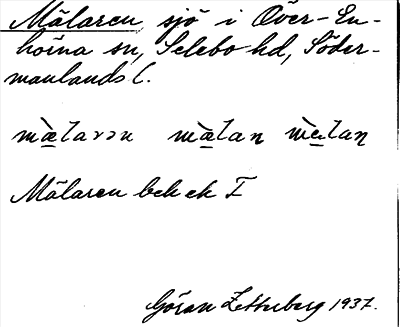 Mälaren, sjö i Över-En-
hörna sn, Selebo hd, Söder-
manlands l.
mæ̀larən mæ̀lan mæ̀lan
Mälaren bek ek I
Göran Zetterberg 1937.